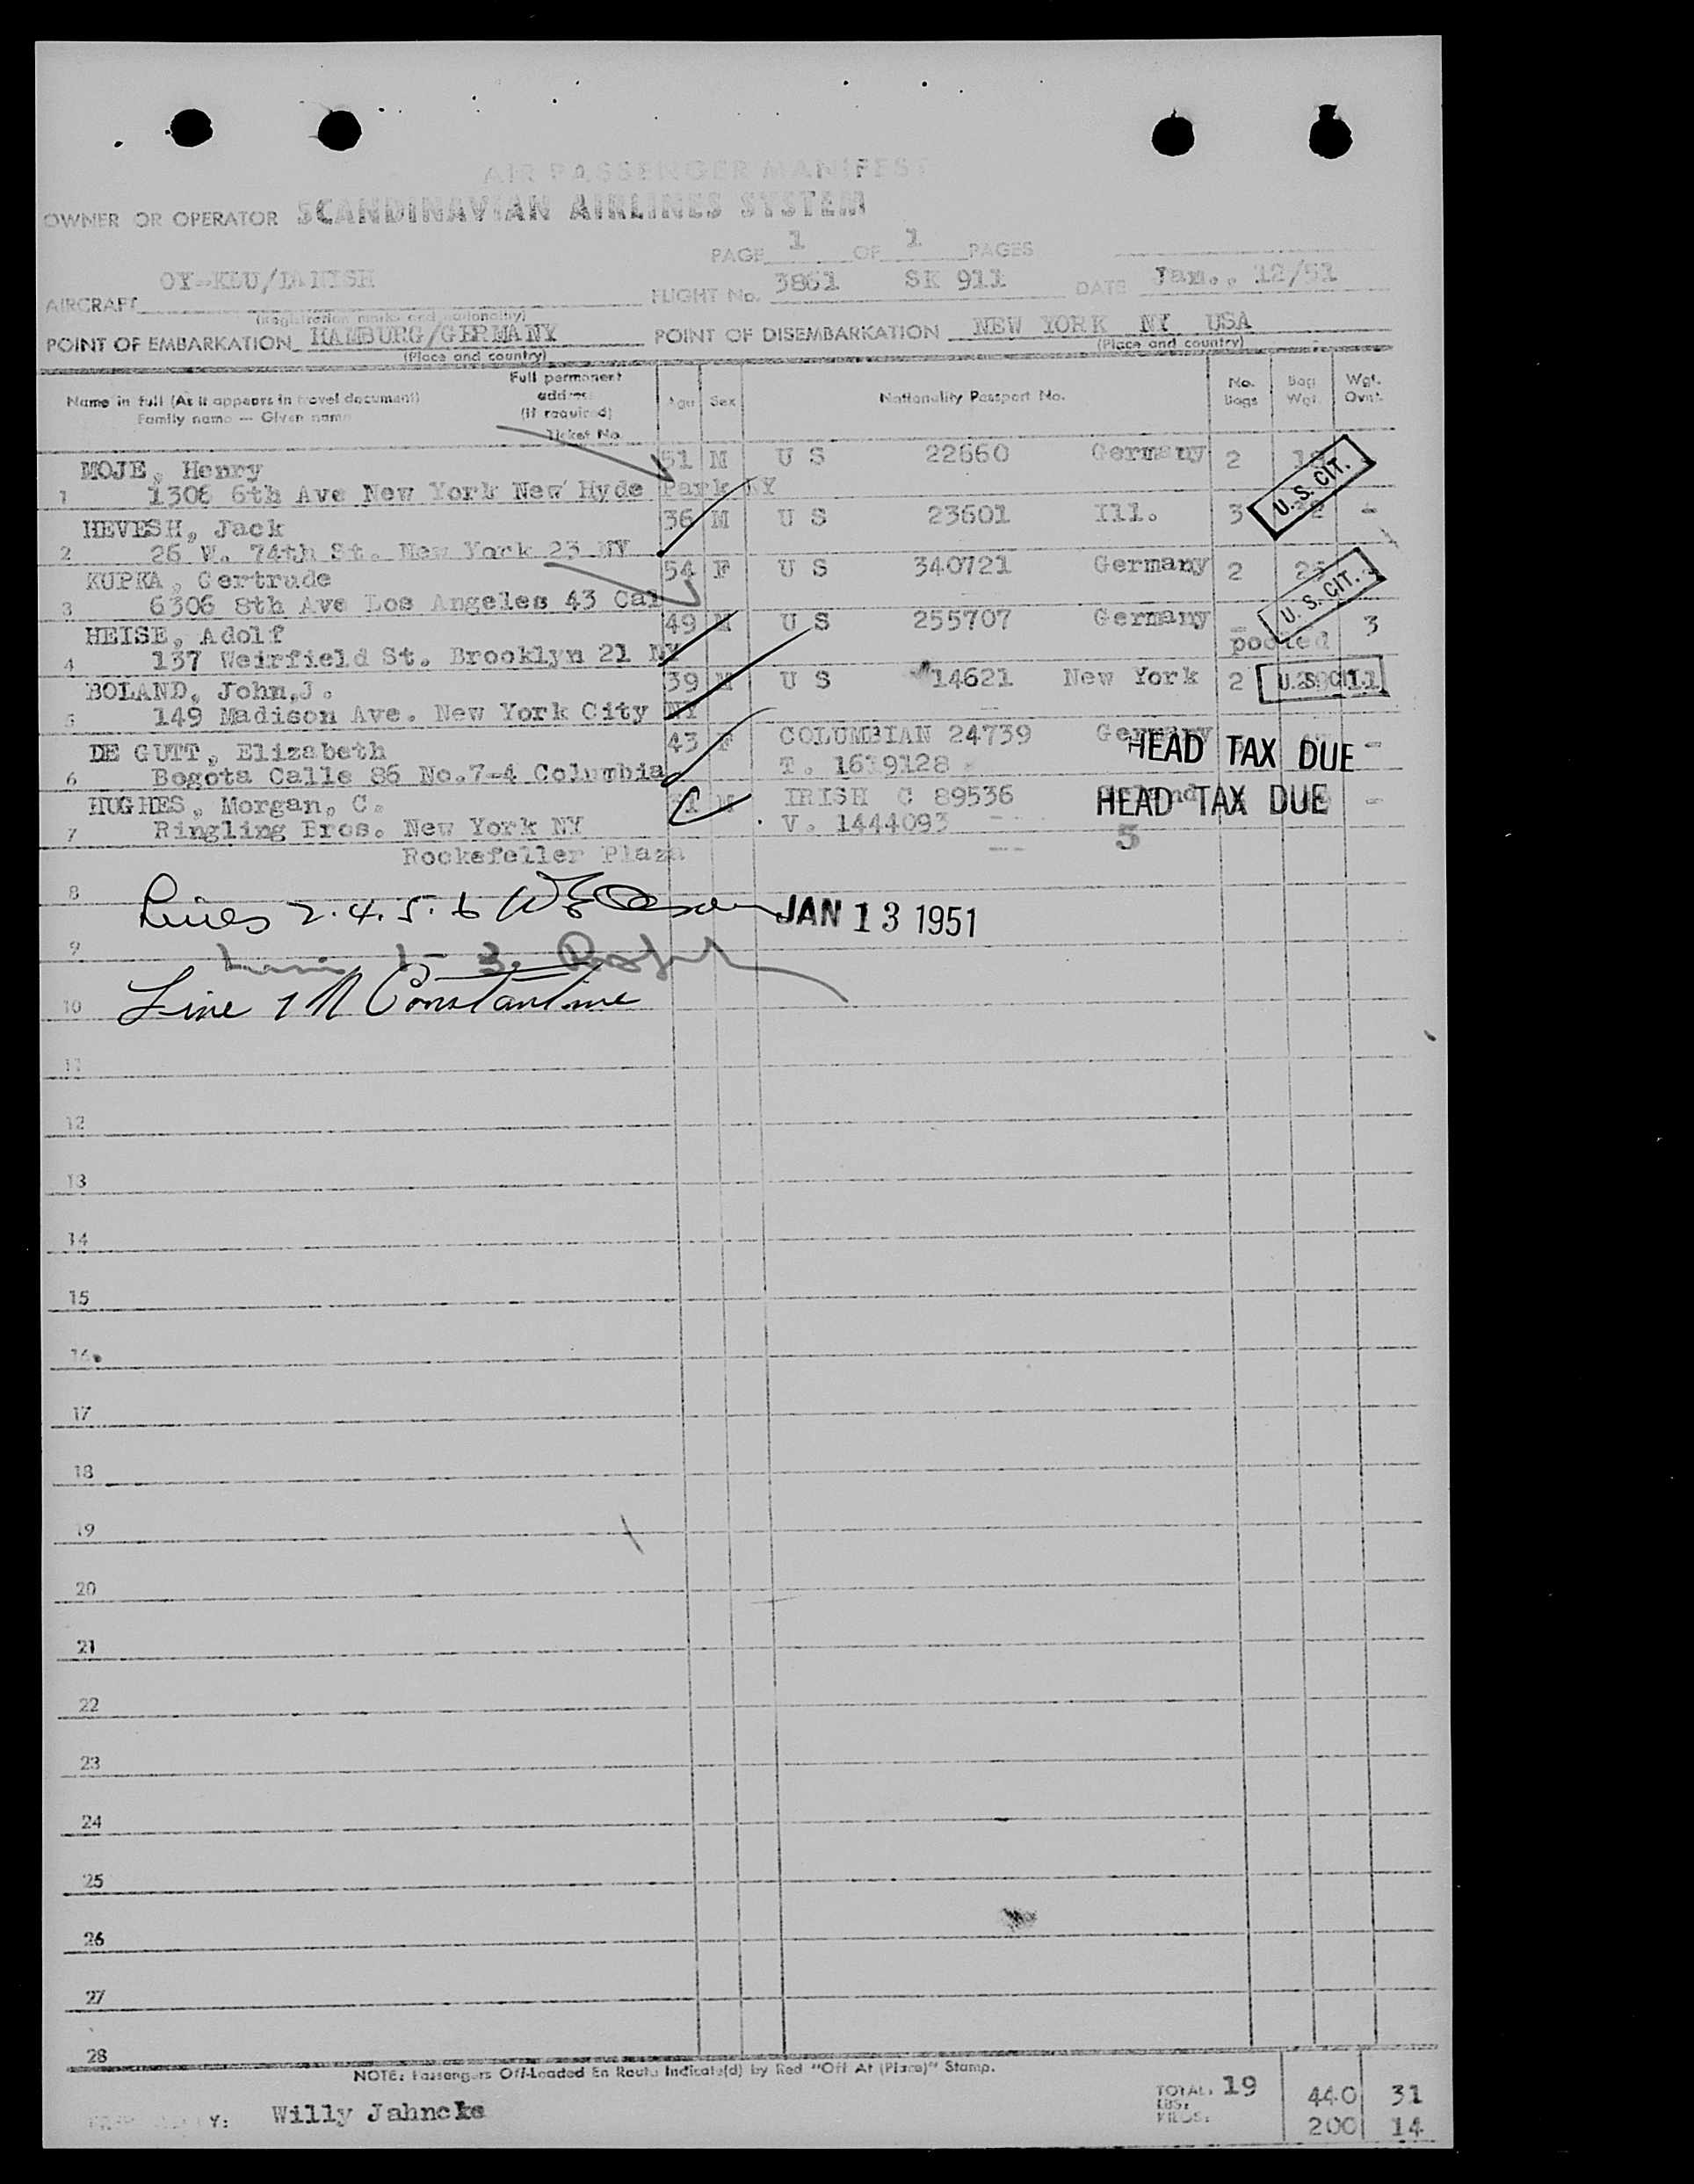 AIR PASSENGER MANIFEST
OWNER OR OPERATOR SCANDINAVIAN AIRLINES SYSTEM
PAGE 1 OF 1 PAGES
AIRCRAFT OY-KDU/DANISH FLIGHT No. 3861 SK 911 DATE Jan., 12/51
(Registration marks and nationality)
POINT OF EMBARKATION HAMBURG/GERMANY POINT OF DISEMBARKATION NEW YORK NY USA
(Place and country) (Place and country)
Name in full (As it appears in travel document) Family name — Given name Full permanent address (If required) Ticket No. Age Sex Nationality Passport No. No. Bags Bag Wgt. Wgt. Ovrt.
MOJE, Henry 51 M U S 22660 Germany 2
1 1306 6th Ave New York New Hyde Park NY U.S. CIT.
HEVESH, Jack 36 M U S 23601 Ill. 3 -
2 26 W. 74th St. New York 23 NY
KUPKA, Gertrude 54 F U S 340721 Germany 2
3 6306 8th Ave Los Angeles 43 Cal U.S. CIT.
HEISE, Adolf 49 M U S 255707 Germany - 3
4 137 Weirfield St. Brooklyn 21 NY pooled
BOLAND, John,J. 39 M U S 14621 New York 2 U.S. CIT. 11
5 149 Madison Ave. New York City NY
DE GUTT, Elizabeth 43 F COLUMBIAN 24739 Germany HEAD TAX DUE -
6 Bogota Calle 86 No.7-4 Columbia T. 1619128
HUGHES, Morgan, C. M IRISH C 89536 HEAD TAX DUE -
7 Ringling Bros. New York NY V. 1444093 5
Rockefeller Plaza
8
Lines 2.4.5.6 JAN 13 1951
9
10 Line 7 M Constantine
11
12
13
14
15
16
17
18
19
20
21
22
23
24
25
26
27
28
NOTE: Passengers Off-Loaded En Route Indicate(d) by Red "Off At (Place)" Stamp.
Y: Willy Jahncke
TOTAL: 19
LBS: 440 31
KILOS: 200 14